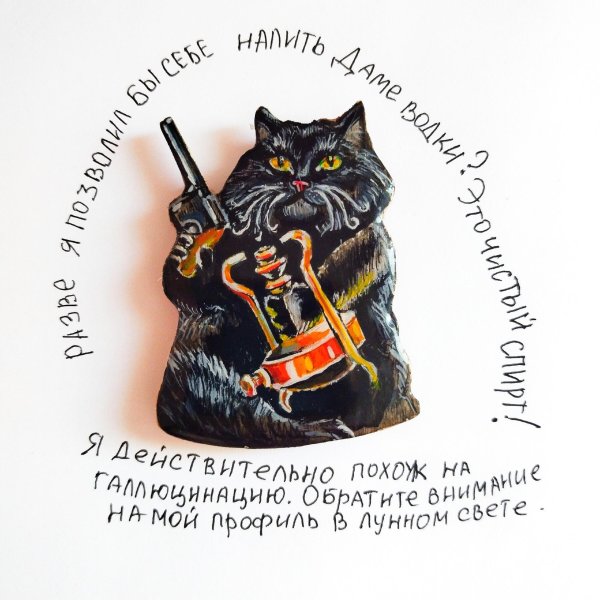 РАЗВЕ Я ПОЗВОЛИЛ БЫ СЕБЕ НАЛИТЬ ДАМЕ ВОДКИ? ЭТО ЧИСТЫЙ СПИРТ!
Я ДЕЙСТВИТЕЛЬНО ПОХОЖ НА
ГАЛЛЮЦИНАЦИЮ. ОБРАТИТЕ ВНИМАНИЕ
НА МОЙ ПРОФИЛЬ В ЛУННОМ СВЕТЕ.